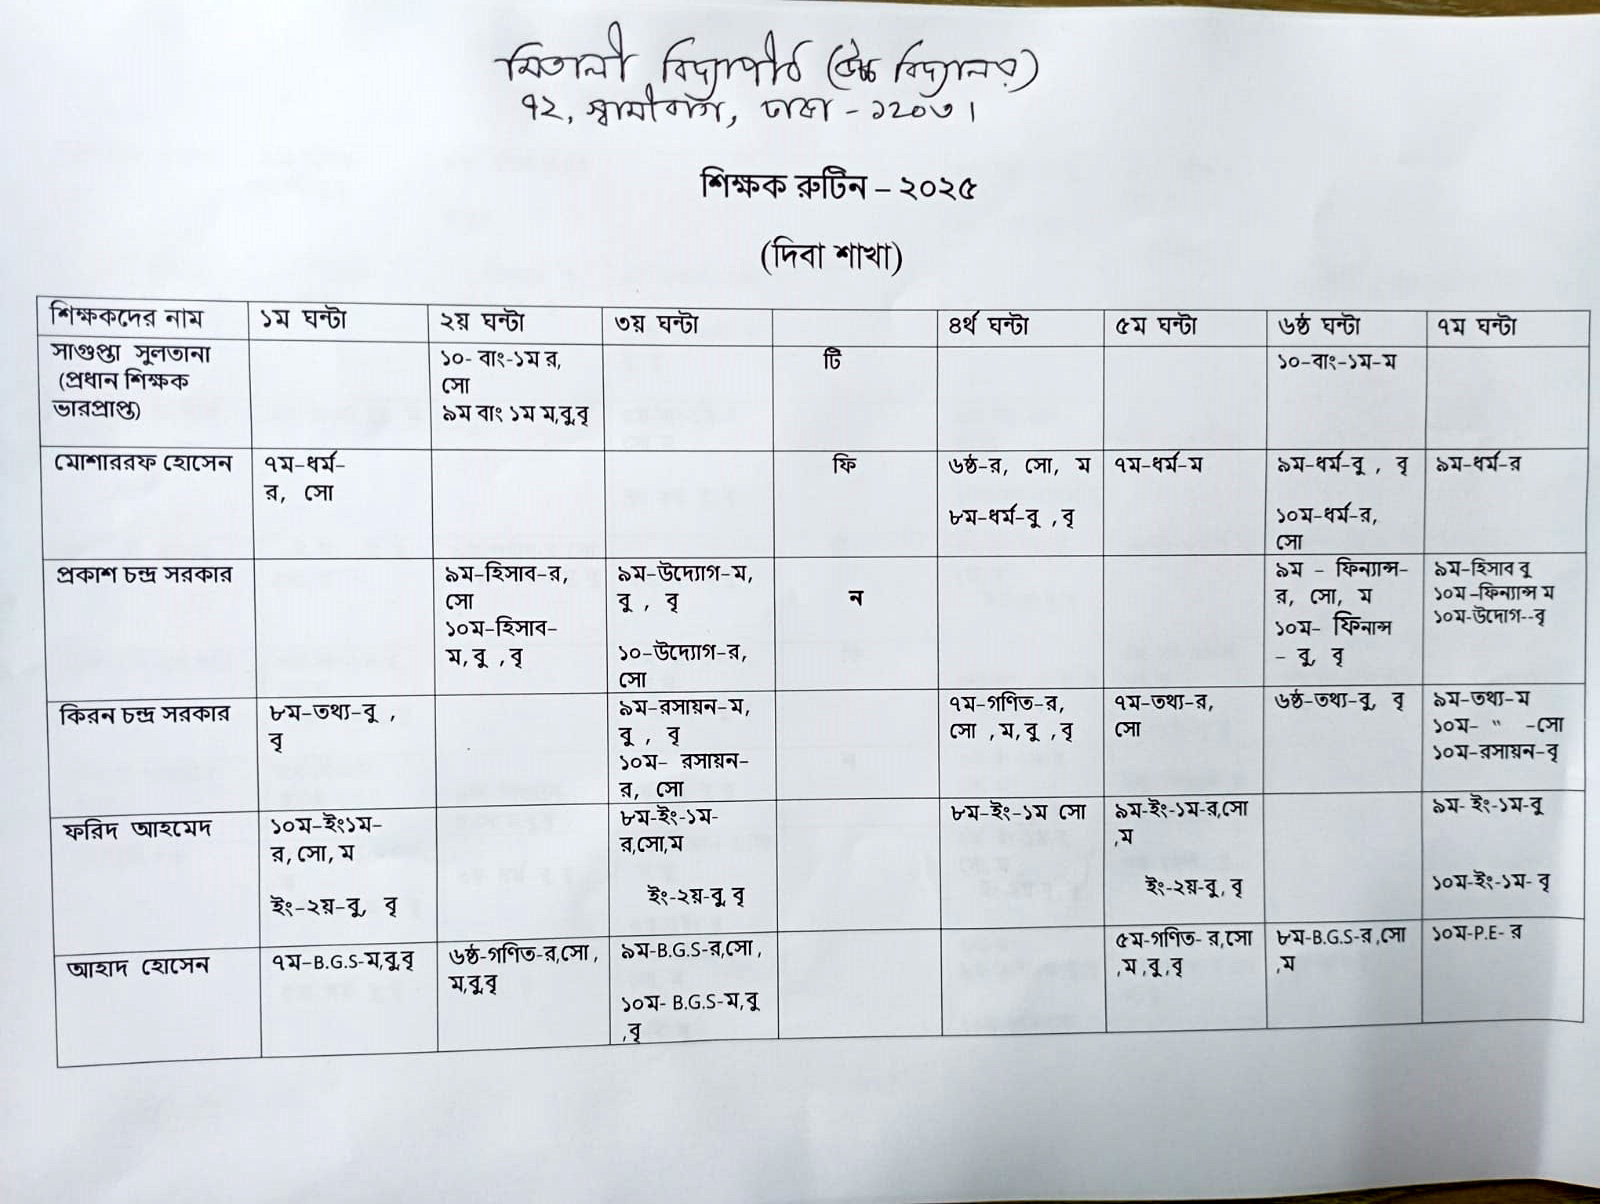 মিতালী বিদ্যাপীঠ (উচ্চ বিদ্যালয়)
৭২, স্বামীবাগ, ঢাকা - ১২০৩।
শিক্ষক রুটিন – ২০২৫
(দিবা শাখা)
শিক্ষকদের নাম ১ম ঘন্টা ২য় ঘন্টা ৩য় ঘন্টা ৪র্থ ঘন্টা ৫ম ঘন্টা ৬ষ্ঠ ঘন্টা ৭ম ঘন্টা
সাগুপ্তা সুলতানা
(প্রধান শিক্ষক
ভারপ্রাপ্ত)
১০- বাং-১ম র,
সো
৯ম বাং ১ম ম,বু,বৃ
টি
১০-বাং-১ম-ম
মোশাররফ হোসেন
৭ম-ধর্ম-
র, সো
ফি
৬ষ্ঠ-র, সো, ম
৮ম-ধর্ম-বু , বৃ
৭ম-ধর্ম-ম
৯ম-ধর্ম-বু , বৃ
১০ম-ধর্ম-র,
সো
৯ম-ধর্ম-র
প্রকাশ চন্দ্র সরকার
৯ম-হিসাব-র,
সো
১০ম-হিসাব-
ম,বু ,বৃ
৯ম-উদ্যোগ-ম,
বু , বৃ
১০-উদ্যোগ-র,
সো
ন
৯ম – ফিন্যান্স-
র, সো, ম
১০ম- ফিনান্স
- বু, বৃ
৯ম-হিসাব বু
১০ম-ফিন্যান্স ম
১০ম-উদ্যোগ--বৃ
কিরন চন্দ্র সরকার
৮ম-তথ্য-বু ,
বৃ
৯ম-রসায়ন-ম,
বু , বৃ
১০ম- রসায়ন-
র, সো
৭ম-গণিত-র,
সো ,ম,বু ,বৃ
৭ম-তথ্য-র,
সো
৬ষ্ঠ-তথ্য-বু, বৃ
৯ম-তথ্য-ম
১০ম- “ -সো
১০ম-রসায়ন-বৃ
ফরিদ আহমেদ
১০ম-ইং১ম-
র,সো,ম
ইং-২য়-বু, বৃ
৮ম-ইং-১ম-
র,সো,ম
ইং-২য়-বু,বৃ
৮ম-ইং-১ম সো
৯ম-ইং-১ম-র,সো
,ম
ইং-২য়-বু,বৃ
৯ম- ইং-১ম-বু
১০ম-ইং-১ম- বৃ
আহাদ হোসেন
৭ম-B.G.S-ম,বু,বৃ
৬ষ্ঠ-গণিত-র,সো,
ম,বু,বৃ
৯ম-B.G.S-র,সো,
১০ম- B.G.S-ম,বু
,বৃ
৫ম-গণিত- র,সো
,ম,বু,বৃ
৮ম-B.G.S-র,সো
,ম
১০ম-P.E- র